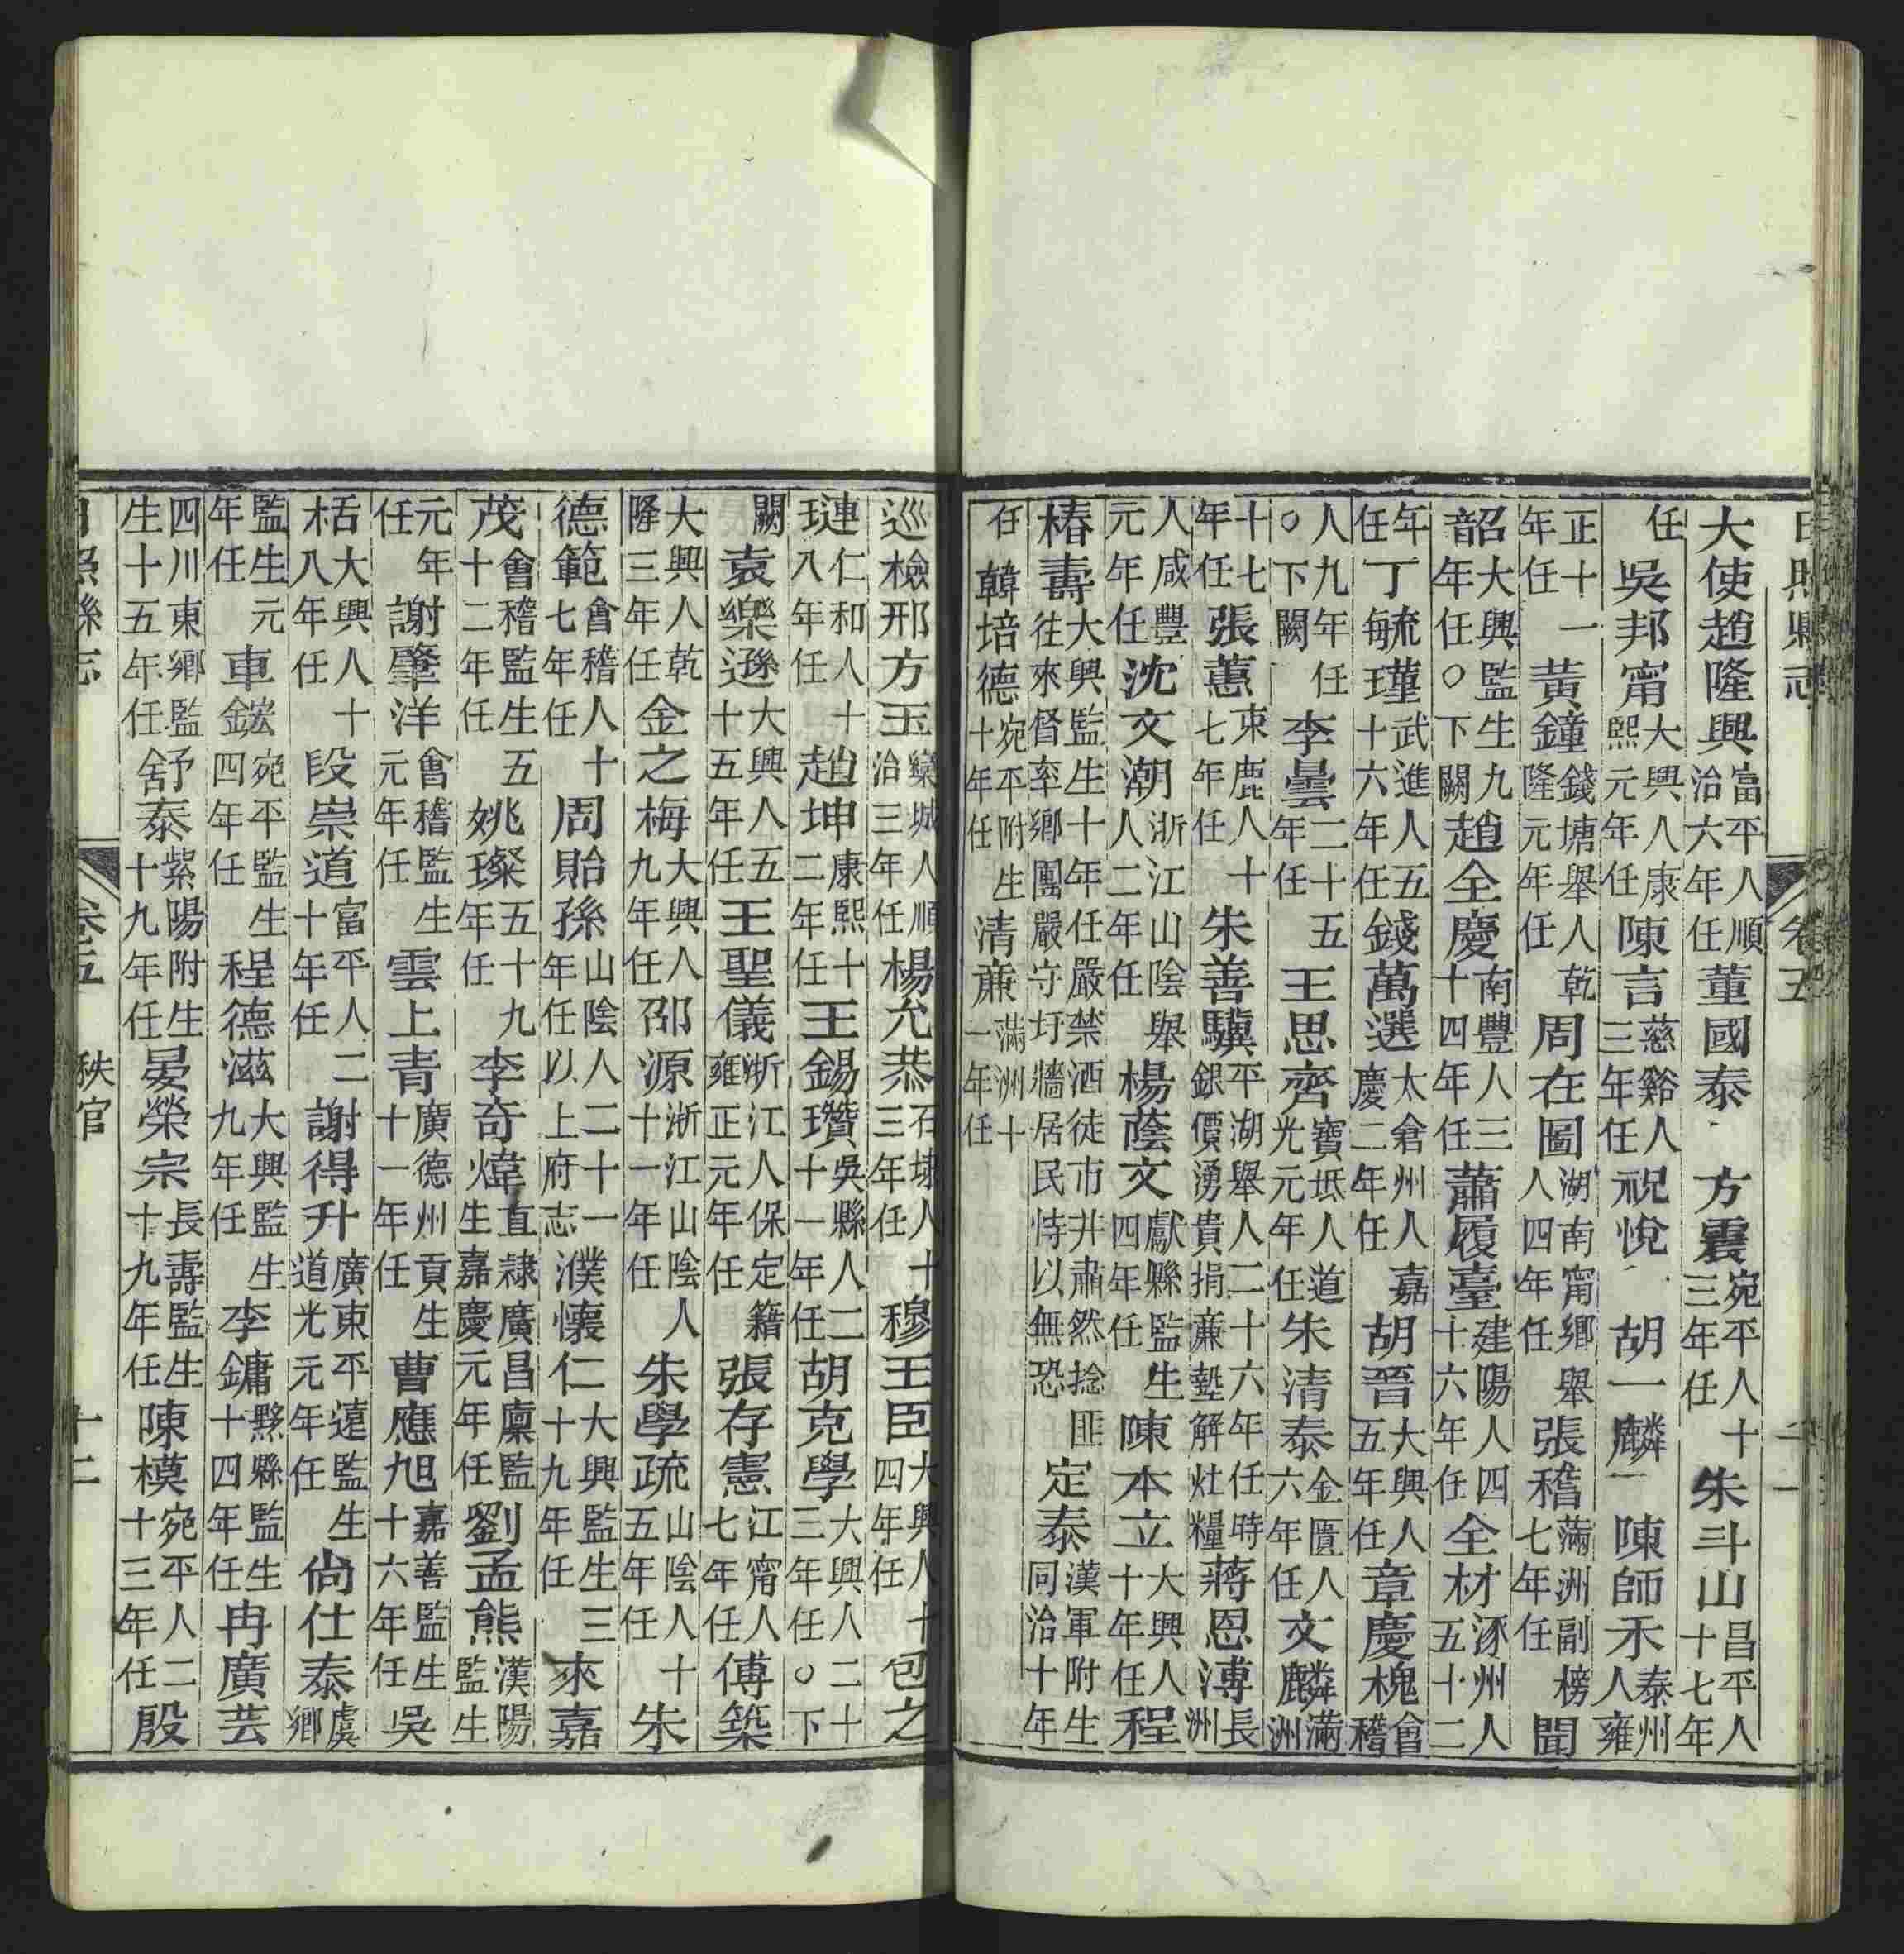 日照縣志 卷五
大使趙隆興富平人順治六年任董國泰 方震宛平人十三年任朱斗山昌平人十七年
任吳邦甯大興人康熙元年任陳言慈谿人三年任祝悅 胡一麟 陳師禾泰州人雍
正十一年任黃鐘錢塘舉人乾隆元年任周在圖湖南甯鄉舉人四年任張稽滿洲副榜七年任聞
韶大興監生九年任○下闕趙全慶南豐人三十四年任蕭履臺建陽人四十六年任全材涿州人五十二
年任丁毓瑾武進人五十六年任錢萬選太倉州人嘉慶二年任胡晉大興人五年任章慶槐會稽
人九年任○下闕李曇二十五年任王思齊寶坻人道光元年任朱清泰金匱人六年任文麟滿洲
十七年任張蕙束鹿人十七年任朱善驥平湖舉人二十六年任時銀價湧貴捐亷墊解灶糧蔣恩溥長洲
人咸豐元年任沈文潮浙江山陰舉人二年任楊蔭文獻縣監生四年任陳本立大興人十年任程
椿壽大興監生十年任嚴禁酒徒市井肅然捻匪往來督率鄉團嚴守圩牆居民恃以無恐定泰漢軍附生同治十年
任韓培德宛平附生十年任清亷滿洲十一年任
巡檢邢方玉欒城人順治三年任楊允恭石埭人十三年任穆王臣大興人十四年任包之
璉仁和人十八年任趙坤康熙十二年任王錫瓚吳縣人二十一年任胡克學大興人二十三年任○下
闕袁樂遜大興人五十五年任王聖儀浙江人保定籍雍正元年任張存憲江甯人七年任傅築
大興人乾隆三年任金之梅大興人九年任邵源浙江山陰人十一年任朱學疏山陰人十五年任朱
德範會稽人十七年任周貽孫山陰人二十一年任以上府志濮懷仁大興監生三十九年任來嘉
茂會稽監生五十二年任姚璨五十九年任李奇煒直隸廣昌廩監生嘉慶元年任劉孟熊漢陽監生
元年任謝肇洋會稽監生元年任雲上青廣德州貢生十一年任曹應旭嘉善監生十六年任吳
桰大興人十八年任段崇道富平人二十年任謝得升廣東平遠監生道光元年任尚仕泰虞鄉
監生元年任車鋐宛平監生四年任程德滋大興監生九年任李鏞黟縣監生十四年任冉廣芸
四川東鄉監生十五年任舒泰紫陽附生十九年任晏榮宗長壽監生十九年任陳模宛平人二十三年任殷
日照縣志 卷五 秩官 十二